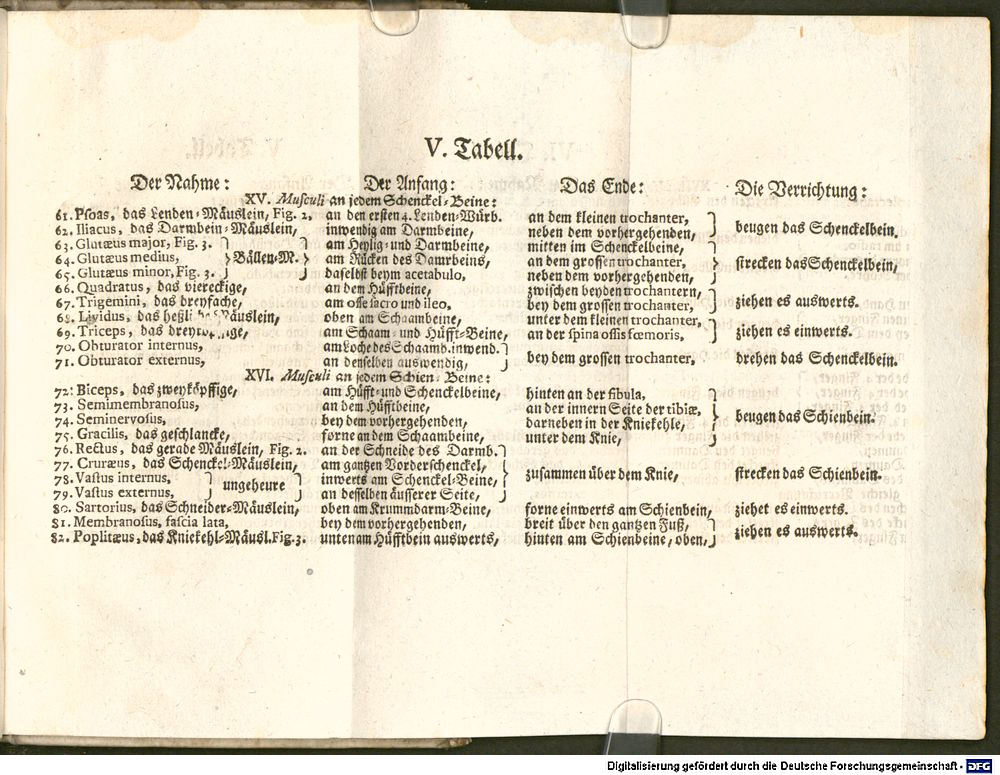 V. Tabell.
Der Nahme: Der Anfang: Das Ende: Die Verrichtung:
XV. Musculi an jedem Schenckel-Beine:
61. Psoas, das Lenden-Mäuslein, Fig. 2, an den ersten 4. Lenden-Würb. an dem kleinen trochanter,
62. Iliacus, das Darmbein-Mäuslein, inwendig am Darmbeine, neben dem vorhergehenden, } beugen das Schenckelbein.
63. Glutæus major, Fig. 3. am Heylig- und Darmbeine, mitten im Schenckelbeine,
64. Glutæus medius, } Bällen-M. } am Rücken des Darmbeins, an dem grossen trochanter, } strecken das Schenckelbein,
65. Glutæus minor, Fig. 3. daselbst beym acetabulo, neben dem vorhergehenden,
66. Quadratus, das viereckige, an dem Hüfftbeine, zwischen beyden trochantern,
67. Trigemini, das dreyfache, am osse sacro und ileo, bey dem grossen trochanter, } ziehen es auswerts.
68. Lividus, das heßli Mäuslein, oben am Schaambeine, unter dem kleinen trochanter,
69. Triceps, am Schaam- und Hüfft-Beine, an der spina ossis fœmoris, } ziehen es einwerts.
70. Obturator internus, am Loche des Schaamb. inwend.
71. Obturator externus, an denselben auswendig, } bey dem grossen trochanter, drehen das Schenckelbein.
XVI. Musculi an jedem Schien-Beine:
72. Biceps, das zweyköpffige, am Hüfft- und Schenckelbeine, hinten an der fibula,
73. Semimembranosus, an dem Hüfftbeine, an der innern Seite der tibiæ,
74. Seminervosus, bey dem vorhergehenden, darneben in der Kniekehle, } beugen das Schienbein.
75. Gracilis, das geschlancke, forne an dem Schaambeine, unter dem Knie,
76. Rectus, das gerade Mäuslein, Fig. 2. an der Schneide des Darmb.
77. Cruræus, das Schenckel-Mäuslein, am gantzen Vorderschenckel,
78. Vastus internus, } ungeheure } inwerts am Schenckel-Beine, } zusammen über dem Knie, strecken das Schienbein.
79. Vastus externus, an desselben äusserer Seite,
80. Sartorius, das Schneider-Mäuslein, oben am Krummdarm-Beine, forne einwerts am Schienbein, ziehet es einwerts.
81. Membranosus, fascia lata, bey dem vorhergehenden, breit über den gantzen Fuß,
82. Poplitæus, das Kniekehl-Mäusl. Fig. 3. unten am Hüfftbein auswerts, hinten am Schienbeine, oben, } ziehen es auswerts.
Digitalisierung gefördert durch die Deutsche Forschungsgemeinschaft - DFG